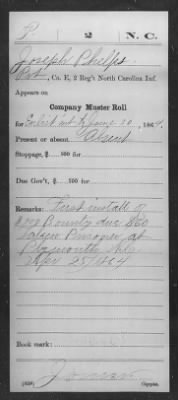 P 2 N.C.
Joseph Phelps
Pvt, Co. E, 2 Reg't North Carolina Inf.
Appears on
Company Muster Roll
for Enlist'mt to June 30, 1864.
Present or absent, Absent
Stoppage, $ 100 for
Due Gov't, $ 100 for
Remarks: First install of
Bounty due $60
taken Prisoner at
Plymouth N.C.
Apr 25/1864
Book mark:
(858) Copyist.